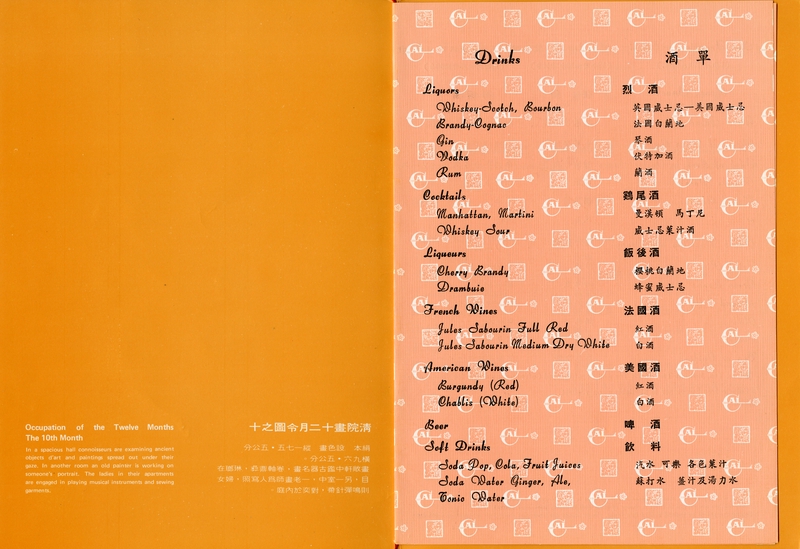 Occupation of the Twelve Months
The 10th Month
In a spacious hall connoisseurs are examining ancient
objects d'art and paintings spread out under their
gaze. In another room an old painter is working on
someone's portrait. The ladies in their apartments
are engaged in playing musical instruments and sewing
garments.
清院畫十二月令圖之十
絹本 設色畫 縱一七五·五公分
橫九六·五公分·
Drinks 酒單
Liquors 烈酒
Whiskey-Scotch, Bourbon 英國威士忌—美國威士忌
Brandy-Cognac 法國白蘭地
Gin 琴酒
Vodka 伏特加酒
Rum 蘭酒
Cocktails 鷄尾酒
Manhattan, Martini 曼漢頓 馬丁尼
Whiskey Sour 威士忌菓汁酒
Liqueurs 飯後酒
Cherry Brandy 櫻桃白蘭地
Drambuie 蜂蜜威士忌
French Wines 法國酒
Jules Sabourin Full Red 紅酒
Jules Sabourin Medium Dry White 白酒
American Wines 美國酒
Burgundy (Red) 紅酒
Chablis (White) 白酒
Beer 啤酒
Soft Drinks 飲料
Soda Pop, Cola, Fruit Juices 汽水 可樂 各色菓汁
Soda Water Ginger, Ale, 蘇打水 薑汁及湯力水
Tonic Water